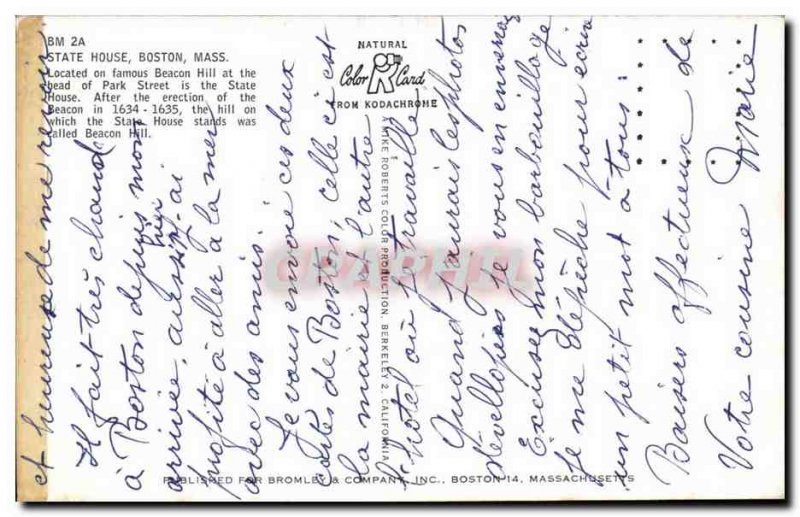 BM 2A
STATE HOUSE, BOSTON, MASS.
Located on famous Beacon Hill at the
head of Park Street is the State
House. After the erection of the
Beacon in 1634-1635, the hill on
which the State House stands was
called Beacon Hill.
NATURAL
Color Card
FROM KODACHROME
A MIKE ROBERTS COLOR PRODUCTION, BERKELEY 2, CALIFORNIA
PUBLISHED FOR BROMLEY & COMPANY, INC., BOSTON 14, MASSACHUSETTS
et heureuse de me réunir
Il fait très chaud
à Boston depuis mon
arrivée, aussi j'ai
profité à aller à la mer
avec des amis.
Je vous envoie ces deux
cartes de Boston, celle ci est
la mairie et l'autre
l'hôtel où je travaille
Quand j'aurais les photos
développées je vous en enverrai
Excusez mon barbouillage
je me dépêche pour écrire
un petit mot à tous.
Baisers affectueux de
Votre cousine Marie